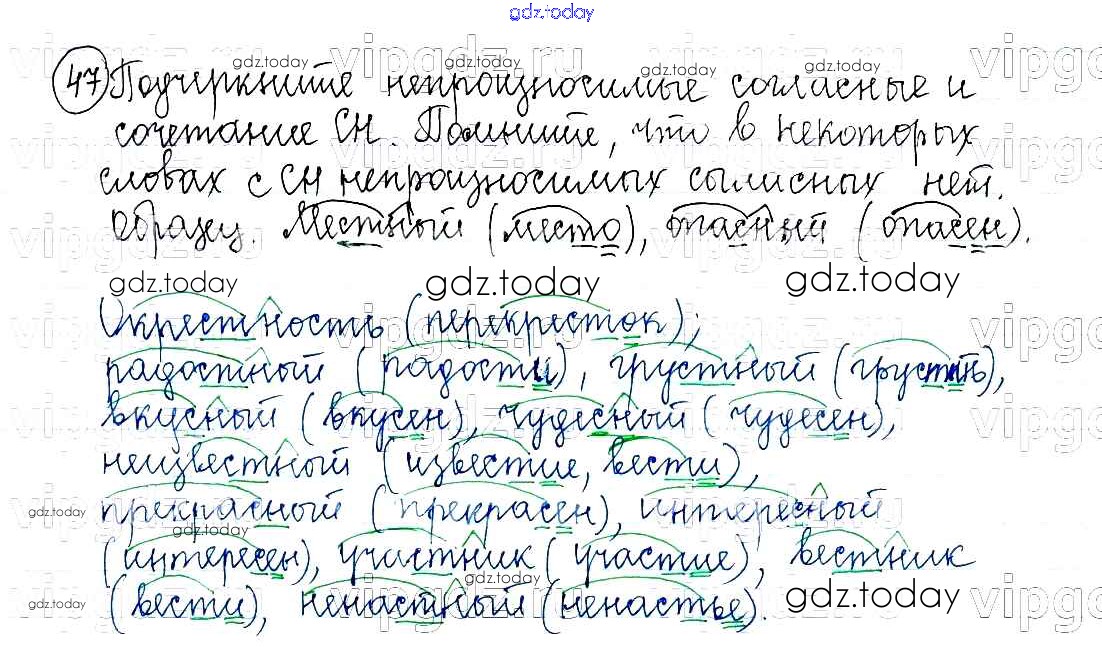 gdz.today
47 Подчеркните непроизносимые согласные и
сочетание СН. Помните, что в некоторых
словах с СН непроизносимых сгласных нет.
Образец. Местный (место), опасный (опасен).
gdz.today gdz.today gdz.today
Окрестность (перекресток);
радостный (радости), грустный (грустить),
вкусный (вкусен), чудесный (чудесен),
неизвестный (известие, вести),
прекрасный (прекрасен), интересный
(интересен), участник (участие), вестник
(вести), ненастный (ненастье).
gdz.today